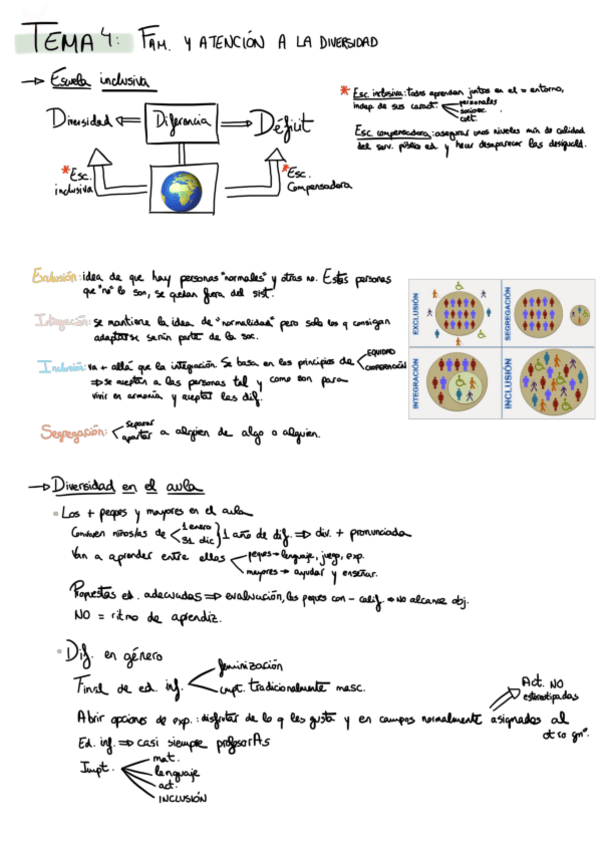 TEMA 4: FAM. Y ATENCIÓN A LA DIVERSIDAD
→ Escuela inclusiva
Diversidad ⇐ Diferencia ⇒ Déficit
* Esc. inclusiva
* Esc. Compensadora
* Esc. inclusiva: todos aprendan juntos en el = entorno,
indep. de sus caract.
personales
socioec.
cult.
Esc. compensadora: asegurar unos niveles mín de calidad
del serv. público ed. y hacer desaparecer las desiguald.
Exclusión: idea de que hay personas "normales" y otras no. Estas personas
que "no" lo son, se quedan fuera del sist.
Integración: se mantiene la idea de "normalidad" pero solo los q consigan
adaptarse serán parte de la soc.
Inclusión: va + allá que la integración. Se basa en los principios de
EQUIDAD
COOPERACIÓN
⇒ se aceptan a las personas tal y como son para
vivir en armonía y aceptar las dif.
Segregación:
separar
apartar
a alguien de algo o alguien.
EXCLUSIÓN
SEGREGACIÓN
INTEGRACIÓN
INCLUSIÓN
→ Diversidad en el aula
• Los + peques y mayores en el aula
Conviven niños/as de
1 enero
31 dic
1 año de dif. ⇒ div. + pronunciada
Van a aprender entre ellos
peques → lenguaje, juego, exp.
mayores → ayudar y enseñar.
Propuestas ed. adecuadas ⇒ evaluación, los peques con - calif ⇒ NO alcanzar obj.
NO = ritmo de aprendiz.
• Dif. en género
Final de ed. inf.
feminización
cmpt. tradicionalmente masc.
Act. NO
estereotipadas
Abrir opciones de exp.: disfrutar de lo q les gusta y en campos normalmente asignados al
otro gnº.
Ed. inf. ⇒ casi siempre profesorAs
Impt.
mat.
lenguaje
act.
INCLUSIÓN